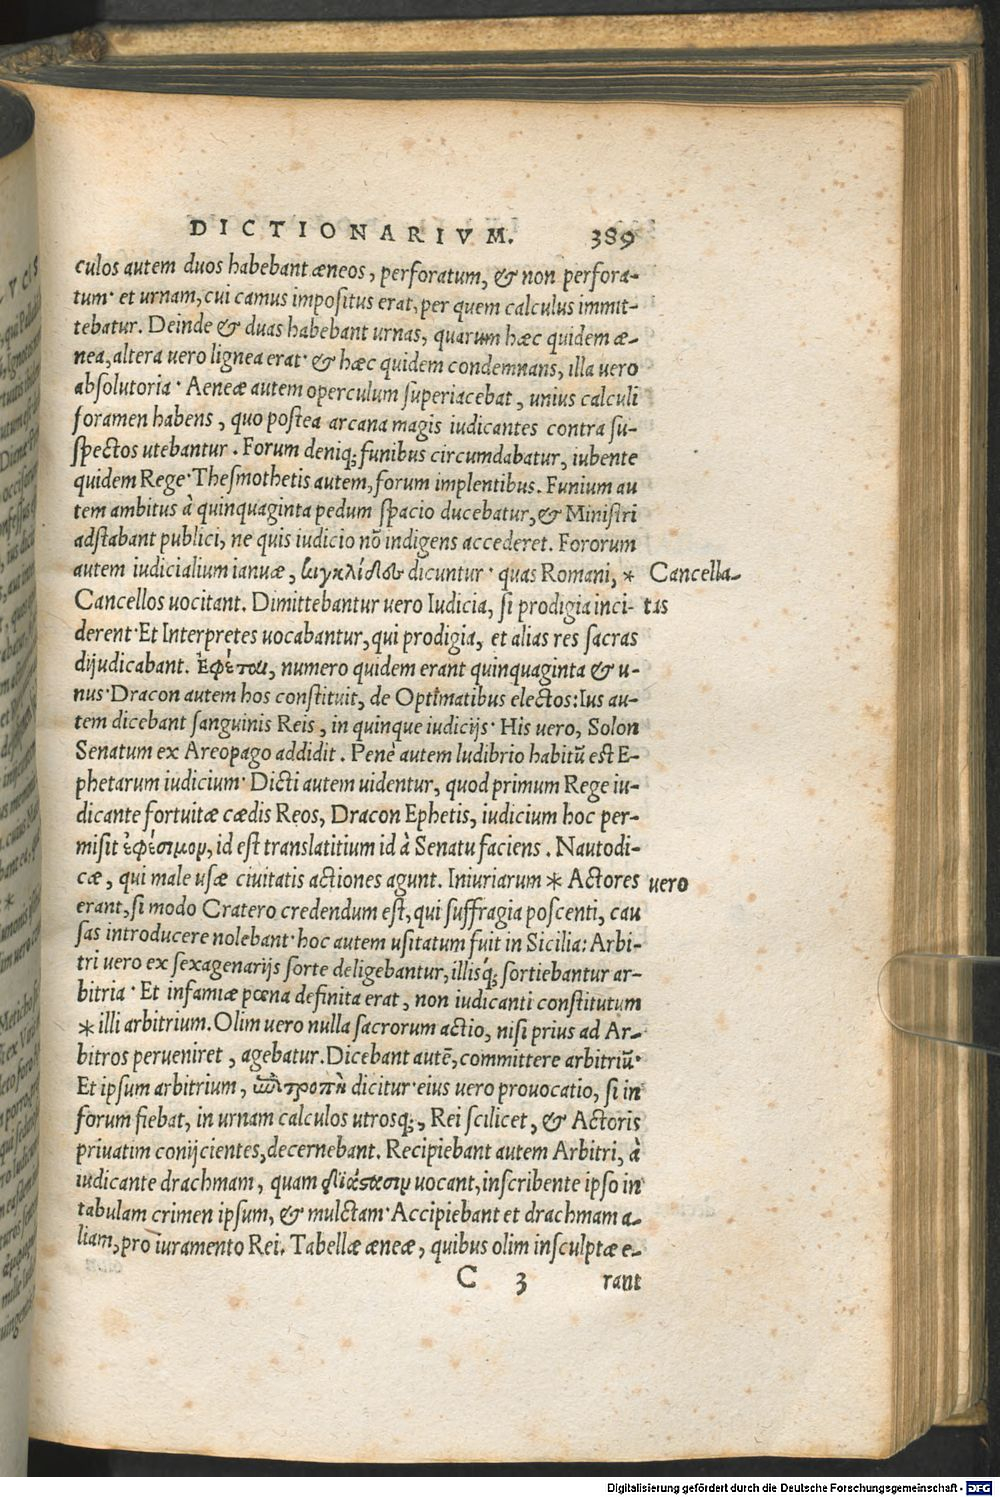 DICTIONARIVM. 389
culos autem duos habebant æneos, perforatum, & non perfora-
tum· et urnam, cui camus impositus erat, per quem calculus immit-
tebatur. Deinde & duas habebant urnas, quarum hæc quidem æ-
nea, altera uero lignea erat· & hæc quidem condemnans, illa uero
absolutoria· Aeneæ autem operculum superiacebat, unius calculi
foramen habens, quo postea arcana magis iudicantes contra su-
spectos utebantur. Forum deniq; funibus circumdabatur, iubente
quidem Rege· Thesmothetis autem, forum implentibus. Funium au
tem ambitus à quinquaginta pedum spacio ducebatur, & Ministri
adstabant publici, ne quis iudicio nō indigens accederet. Fororum
autem iudicialium ianuæ, κιγκλίδες dicuntur· quas Romani, * Cancella-
Cancellos uocitant. Dimittebantur uero Iudicia, si prodigia inci- tas
derent· Et Interpretes uocabantur, qui prodigia, et alias res sacras
dijudicabant. Ἐφέται, numero quidem erant quinquaginta & u-
nus· Dracon autem hos constituit, de Optimatibus electos: Ius au-
tem dicebant sanguinis Reis, in quinque iudicijs· His uero, Solon
Senatum ex Areopago addidit. Penè autem ludibrio habitū est E-
phetarum iudicium· Dicti autem uidentur, quod primum Rege iu-
dicante fortuitæ cædis Reos, Dracon Ephetis, iudicium hoc per-
misit ἐφέσιμον, id est translatitium id à Senatu faciens. Nautodi-
cæ, qui male usæ ciuitatis actiones agunt. Iniuriarum * Actores uero
erant, si modo Cratero credendum est, qui suffragia poscenti, cau
sas introducere nolebant· hoc autem usitatum fuit in Sicilia: Arbi-
tri uero ex sexagenarijs sorte deligebantur, illisq́; sortiebantur ar-
bitria· Et infamiæ pœna definita erat, non iudicanti constitutum
* illi arbitrium. Olim uero nulla sacrorum actio, nisi prius ad Ar-
bitros perueniret, agebatur. Dicebant autē, committere arbitriū·
Et ipsum arbitrium, ἐπιτροπὴ dicitur· eius uero prouocatio, si in
forum fiebat, in urnam calculos utrosq;, Rei scilicet, & Actoris
priuatim conijcientes, decernebant. Recipiebant autem Arbitri, à
iudicante drachmam, quam διάστασιν uocant, inscribente ipso in
tabulam crimen ipsum, & mulctam· Accipiebant et drachmam a-
liam, pro iuramento Rei. Tabellæ æneæ, quibus olim insculptæ e-
C 3 rant
Digitalisierung gefördert durch die Deutsche Forschungsgemeinschaft - DFG